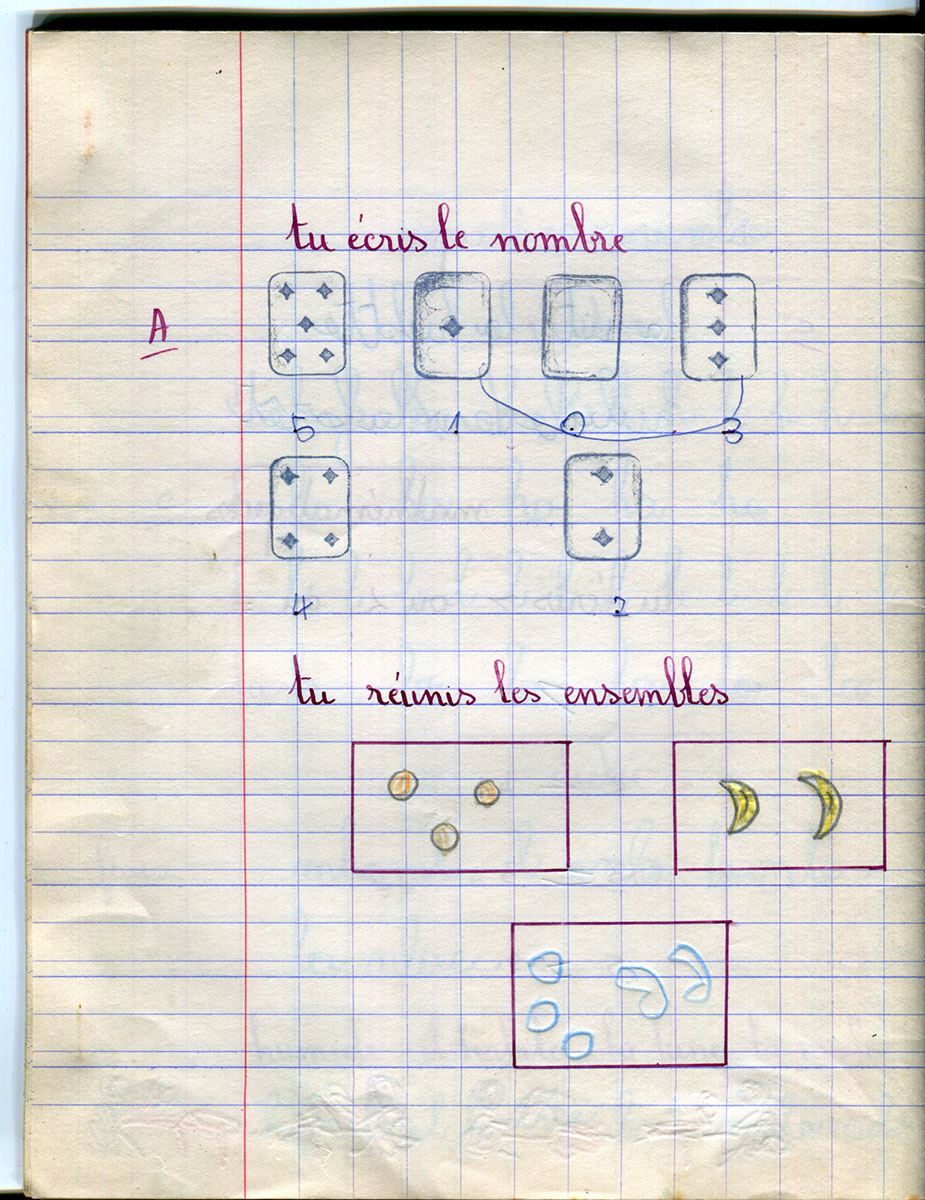 tu écris le nombre
A
5 1 0 3
4 2
tu réunis les ensembles